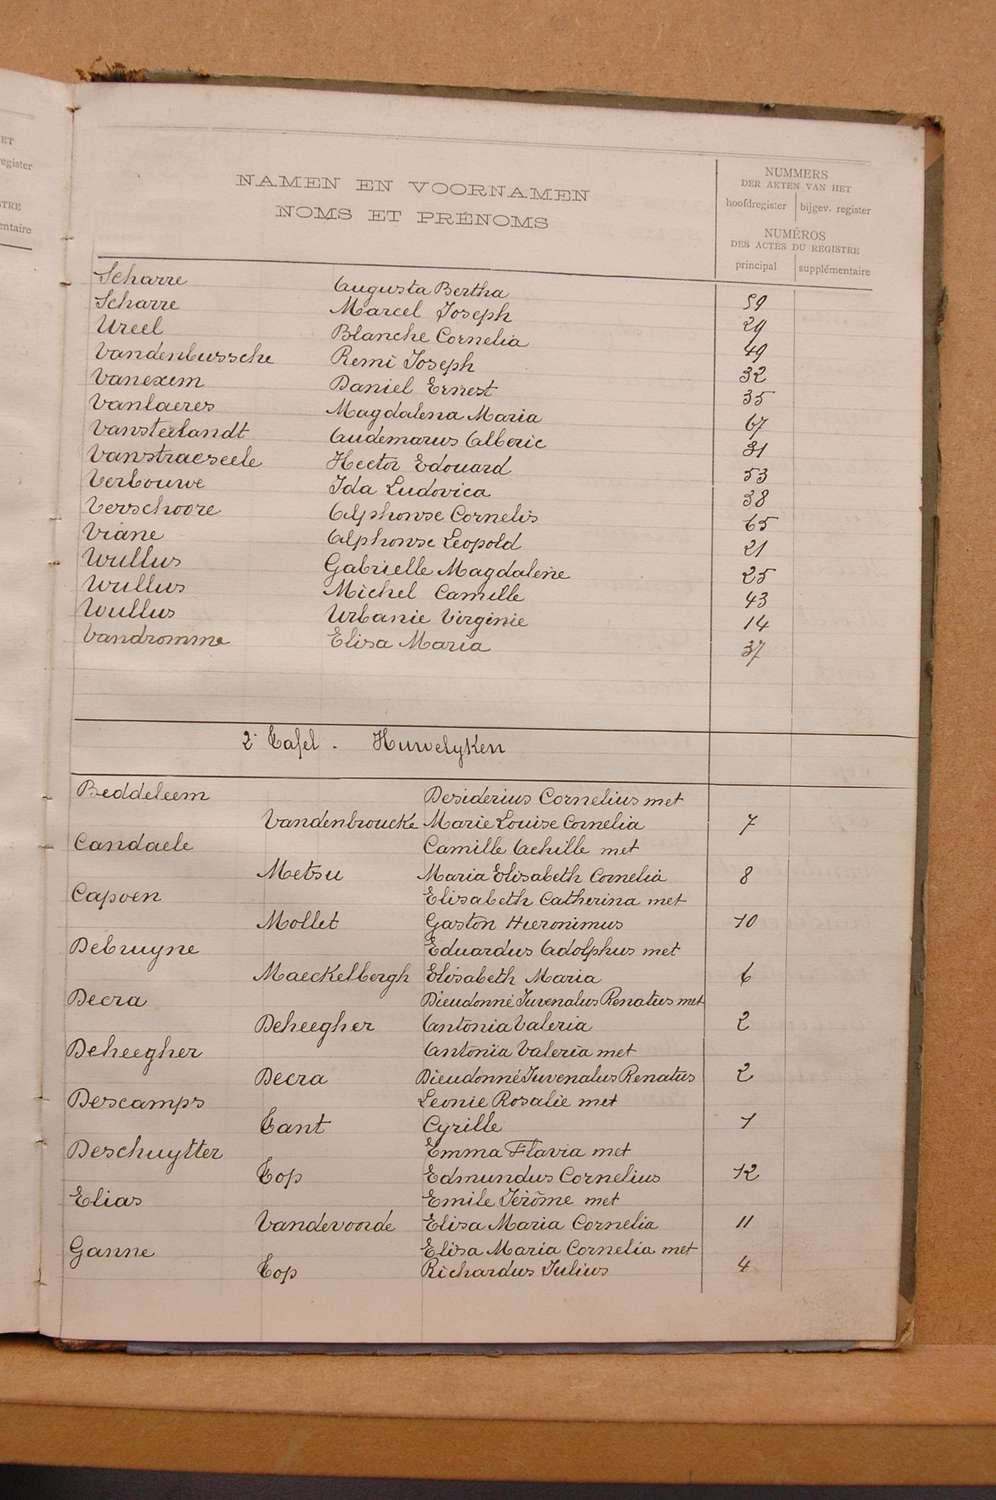 ET
register
TRE
entaire
NAMEN EN VOORNAMEN
NOMS ET PRÉNOMS
NUMMERS
DER AKTEN VAN HET
hoofdregister bijgev. register
NUMÉROS
DES ACTES DU REGISTRE
principal supplémentaire
Scharre Augusta Bertha 59
Scharre Marcel Joseph 29
Ureel Blanche Cornelia 49
Vandenbussche Remi Joseph 32
Vanexem Daniel Ernest 35
Vanlaeres Magdalena Maria 67
Vansterlandt Audemarus Alberic 31
Vanstraeseele Hector Edouard 53
Verbouwe Ida Ludovica 38
Verschoore Alphonse Cornelis 65
Viane Alphonse Leopold 21
Wullus Gabrielle Magdaleine 25
Wullus Michel Camille 43
Wullus Urbanie Virginie 14
Vandromme Elisa Maria 37
2e Tafel - Huwelyken
Beddeleem Desiderius Cornelius met
Vandenbroucke Marie Louise Cornelia 7
Candaele Camille Achille met
Metsu Maria Elisabeth Cornelia 8
Capoen Elisabeth Catherina met
Mollet Gaston Hieronimus 10
Debruyne Eduardus Adolphus met
Maeckelbergh Elisabeth Maria 6
Decra Dieudonné Juvenalus Renatus met
Deheegher Antonia Valeria 2
Deheegher Antonia Valeria met
Decra Dieudonné Juvenalus Renatus 2
Descamps Leonie Rosalie met
Tant Cyrille 1
Deschuytter Emma Flavia met
Top Edmundus Cornelius 12
Elias Emile Jérôme met
Vandevoorde Elisa Maria Cornelia 11
Ganne Elisa Maria Cornelia met
Top Richardus Julius 4